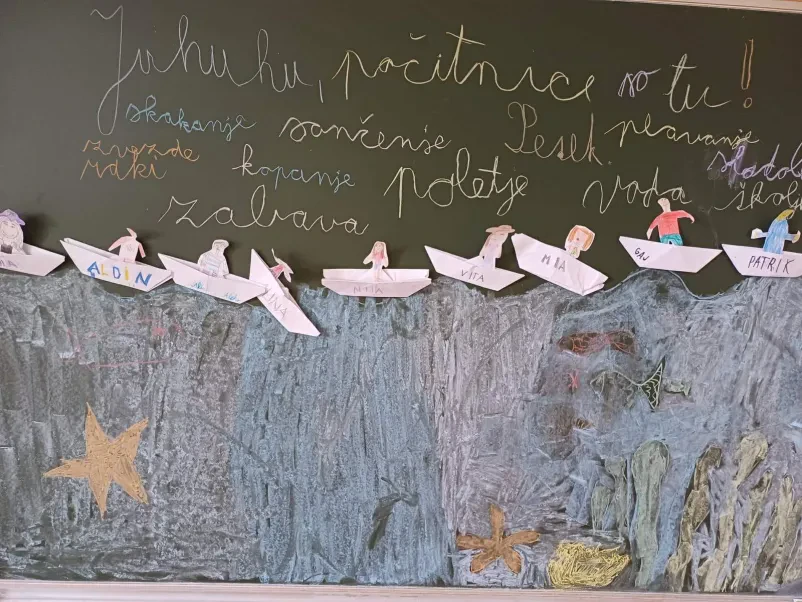 Juhuhu, počitnice so tu!
skakanje sončenje Pesek plavanje
zvezde kopanje poletje voda sladol
raki zabava škol
ALDIN
NINA
VITA
MIA
GAJ
PATRIK